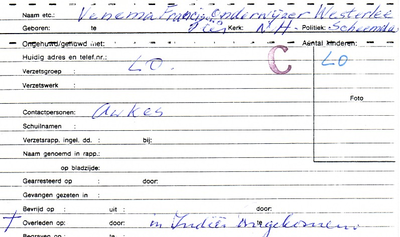 Naam etc.: Venema Francis Onderwijzer Westerlee
Geboren: te Kerk: N H - Politiek: Schermda
Ongehuwd/gehuwd met: Aantal kinderen:
Huidig adres en telef.nr.: LO
Verzetsgroep : LO.
C
Verzetswerk :
Foto
Contactpersonen: Aukes
Schuilnamen :
Verzetsrapp. ingel. dd. : bij:
Naam genoemd in rapp.:
op bladzijde:
Gearresteerd op : door:
Gevangen gezeten in :
Bevrijd op : uit : door:
† Overleden op: door: te in Indië omgekomen
Begraven op : te